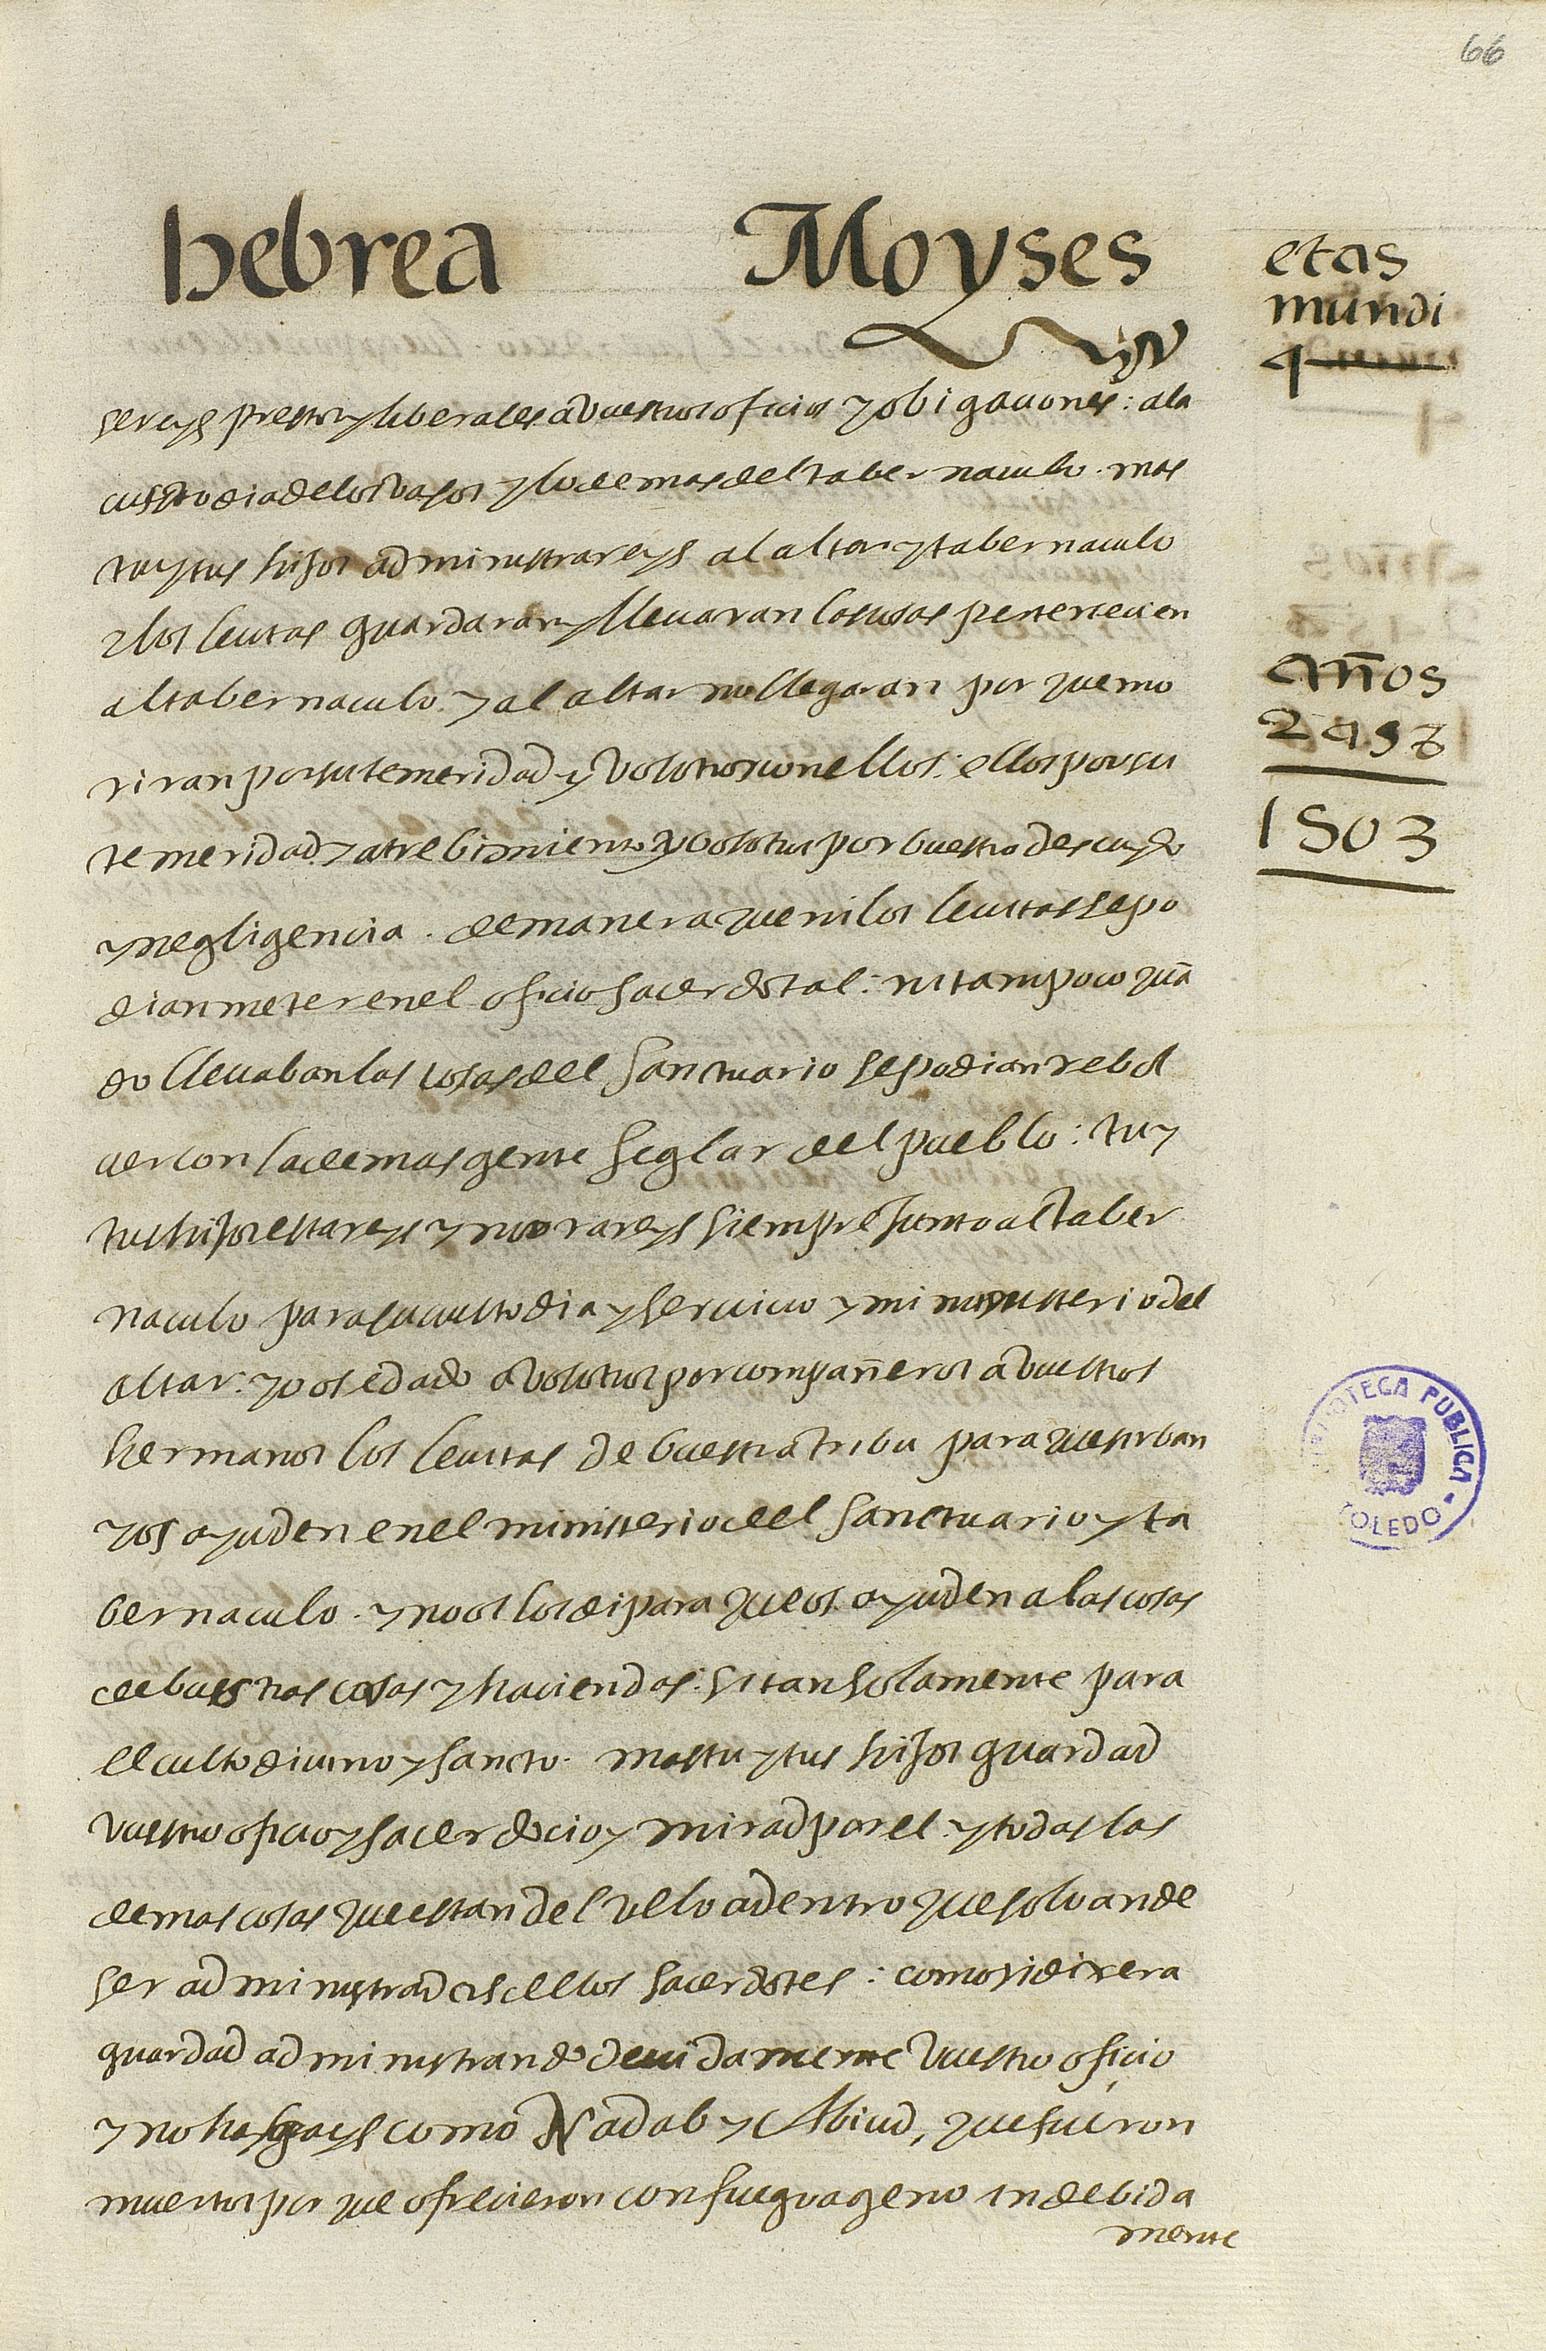 66
hebrea Moyses
etas
mundi
4
sereys prestos y liberales a vuestros oficios y obigaciones: a la
custodia de los vasos y lo demas del tabernaculo. mas
tu y tus hijos administrareys al altar y tabernaculo
y los levitas guardaran y llevaran las cosas pertenecien
al tabernaculo. y al altar no llegaran por que mo
riran por su temeridad y vosotros con ellos: ellos por su
temeridad y atrebimiento y vosotros por buestro descuydo
y negligencia. de manera que ni los levitas se po
dian meter en el oficio sacerdotal: ni tampoco quã
do llevaban las cosas del sanctuario se podian rebol
ver con la demas gente seglar del pueblo: tu y
tus hijos estareys y morareys siempre junto al taber
naculo para su custodia y servicio y ministerio del
altar: yo os e dado a vosotros por compañeros a vuestros
hermanos los levitas de buestra tribu para que sirban
y os ayuden en el ministerio del sanctuario y ta
bernaculo. y no os los di para que os ayuden a las cosas
de buestras casas y haciendas: si tan solamente para
el culto divino y sancto. mas tu y tus hijos guardad
vuestro oficio y sacerdocio y mirad por el. y todas las
demas cosas que estan del velo adentro que solo an de
ser administradas de los sacerdotes: como si dixera
guardad administrando devidamente vuestro oficio
y no hagays como Nadab y Abiud, que fueron
muertos por que ofrecieron con fuego ageno indebida
mente
años
2458
1503
BIBLIOTECA PUBLICA
TOLEDO